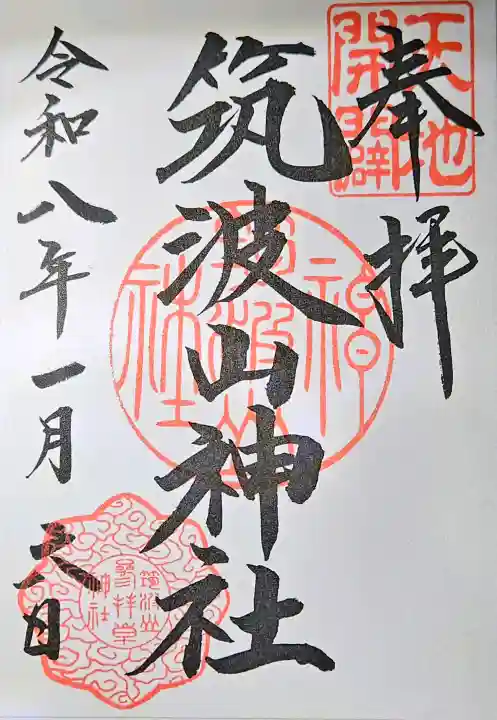 奉拝
天地開闢
筑波山神社
筑波山神社
令和八年一月
筑波山神社参拝章